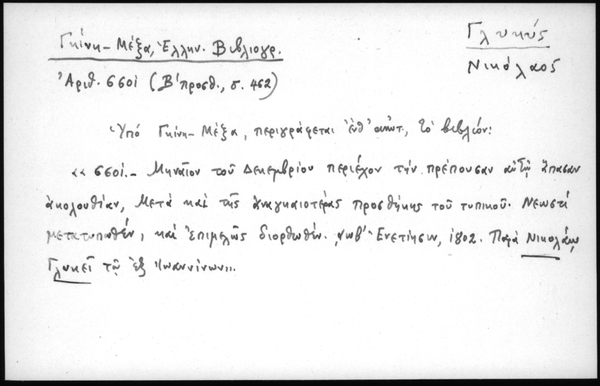 Γλυκύς
Νικόλαος
Γκίνη-Μέξα, Ἑλλην. Βιβλιογρ.
Ἀριθ. 6601 (Β' προσθ., σ. 462)
Ὑπό Γκίνη-Μέξα, περιγράφεται ἐνθ' ἀνωτ., τό βιβλίον:
«6601.- Μηναῖον τοῦ Δεκεμβρίου περιέχον τήν πρέπουσαν αὐτῷ ἅπασαν
ἀκολουθίαν, μετά καί τῆς ἀναγκαιοτέρας προσθήκης τοῦ τυπικοῦ. Νεωστί
μετατυπωθέν, καί ἐπιμελῶς διορθωθέν. ͵αωβ' Ἐνετίησιν, 1802. Παρά Νικολάῳ
Γλυκεῖ τῷ ἐξ Ἰωαννίνων».